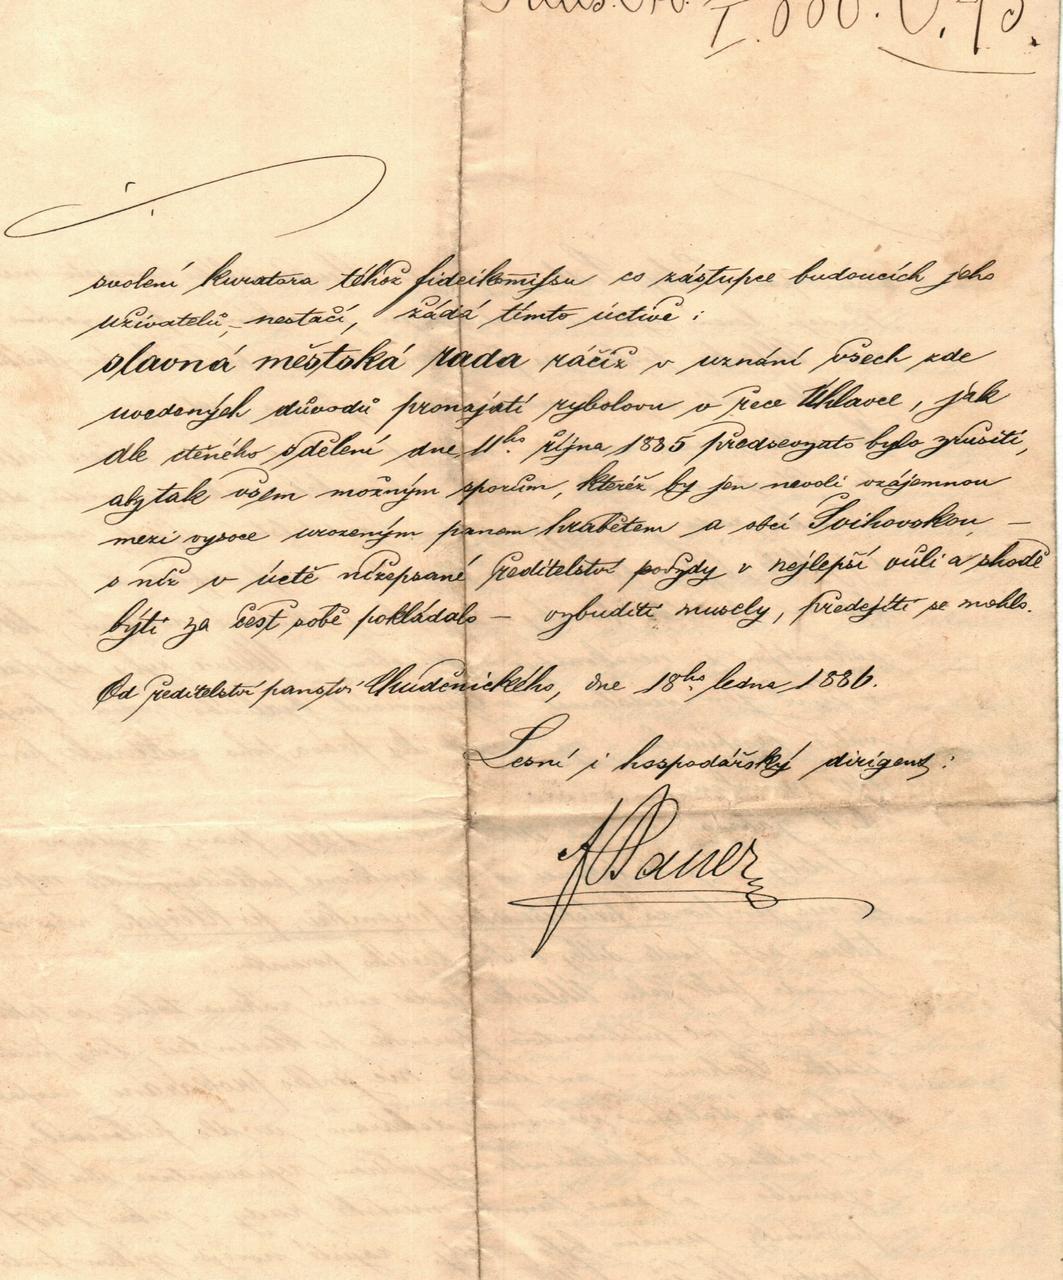 I. 888. V. 43.
svolení kuratora téhož fideikomissu co zástupce budoucích jeho
uživatelů, nestačí, žádá tímto úctivě :
slavná městská rada ráčiž v uznání všech zde
uvedených důvodů pronajatí rybolovu v řece Uhlavce, jak
dle ctěného sdělení dne 11ho října 1885 předsevzato bylo zrušiti,
aby tak všem možným sporům, kteréž by jen nevoli vzájemnou
mezi vysoce urozeným panem hrabětem a obcí Švihovskou –
s níž v úctě nížepsané ředitelství povždy v nejlepší vůli a shodě
býti za čest sobě pokládalo – vzbuditi musely, předejíti se mohlo.
Od ředitelství panství Chudenického, dne 18ho ledna 1886.
Lesní i hospodářský dirigent :
A Pauer